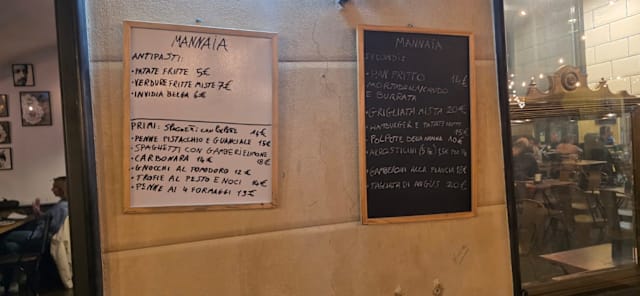 MANNAIA
ANTIPASTI:
• PATATE FRITTE 5€
• VERDURE FRITTE MISTE 7€
• INVIDIA BELGA 6€
PRIMI: SPAGHETTI CON 14€
• PENNE PISTACCHIO E GUANCIALE 15€
• SPAGHETTI CON GAMBERI E LIMONE 18€
• CARBONARA 14€
• GNOCCHI AL POMODORO 12€
• TROFIE AL PESTO E NOCI 14€
• PENNE AI 4 FORMAGGI 13€
MANNAIA
SECONDI:
• PAN FRITTO 14€
MORTADELLA
E BURRATA
• GRIGLIATA MISTA 20€
• HAMBURGER E PATATE FRITTE
15€
• POLPOTE DELLA NONNA 10€
• ARROSTICINI
• GAMBERONI ALLA PIASTRA 18€
• TAGLIATA DI ANGUS 20€